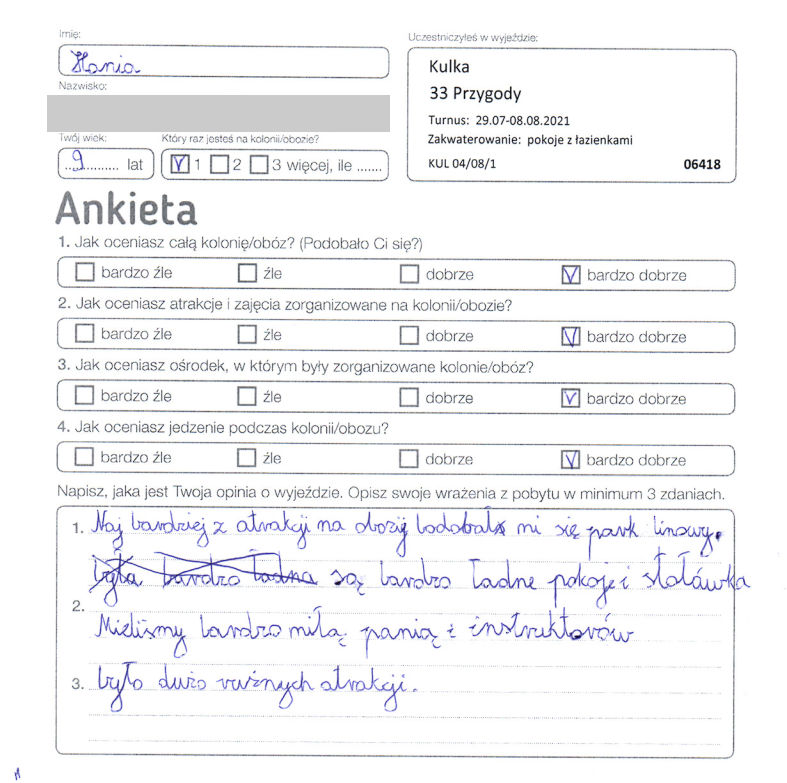 Imię:
Hania
Nazwisko:
Twój wiek:
Który raz jesteś na kolonii/obozie?
9 lat
V 1 2 3 więcej, ile .......
Uczestniczyłeś w wyjeździe:
Kulka
33 Przygody
Turnus: 29.07-08.08.2021
Zakwaterowanie: pokoje z łazienkami
KUL 04/08/1 06418
Ankieta
1. Jak oceniasz całą kolonię/obóz? (Podobało Ci się?)
bardzo źle źle dobrze V bardzo dobrze
2. Jak oceniasz atrakcje i zajęcia zorganizowane na kolonii/obozie?
bardzo źle źle dobrze V bardzo dobrze
3. Jak oceniasz ośrodek, w którym były zorganizowane kolonie/obóz?
bardzo źle źle dobrze V bardzo dobrze
4. Jak oceniasz jedzenie podczas kolonii/obozu?
bardzo źle źle dobrze V bardzo dobrze
Napisz, jaka jest Twoja opinia o wyjeździe. Opisz swoje wrażenia z pobytu w minimum 3 zdaniach.
1. Naj bardziej z atrakcji na obozij bodobała mi się park linowy.
była bardzo ładna są bardzo ładne pokoje i stołówka
2. Mieliśmy bardzo miłą panią i instruktorów
3. było dużo rużnych atrakcji.